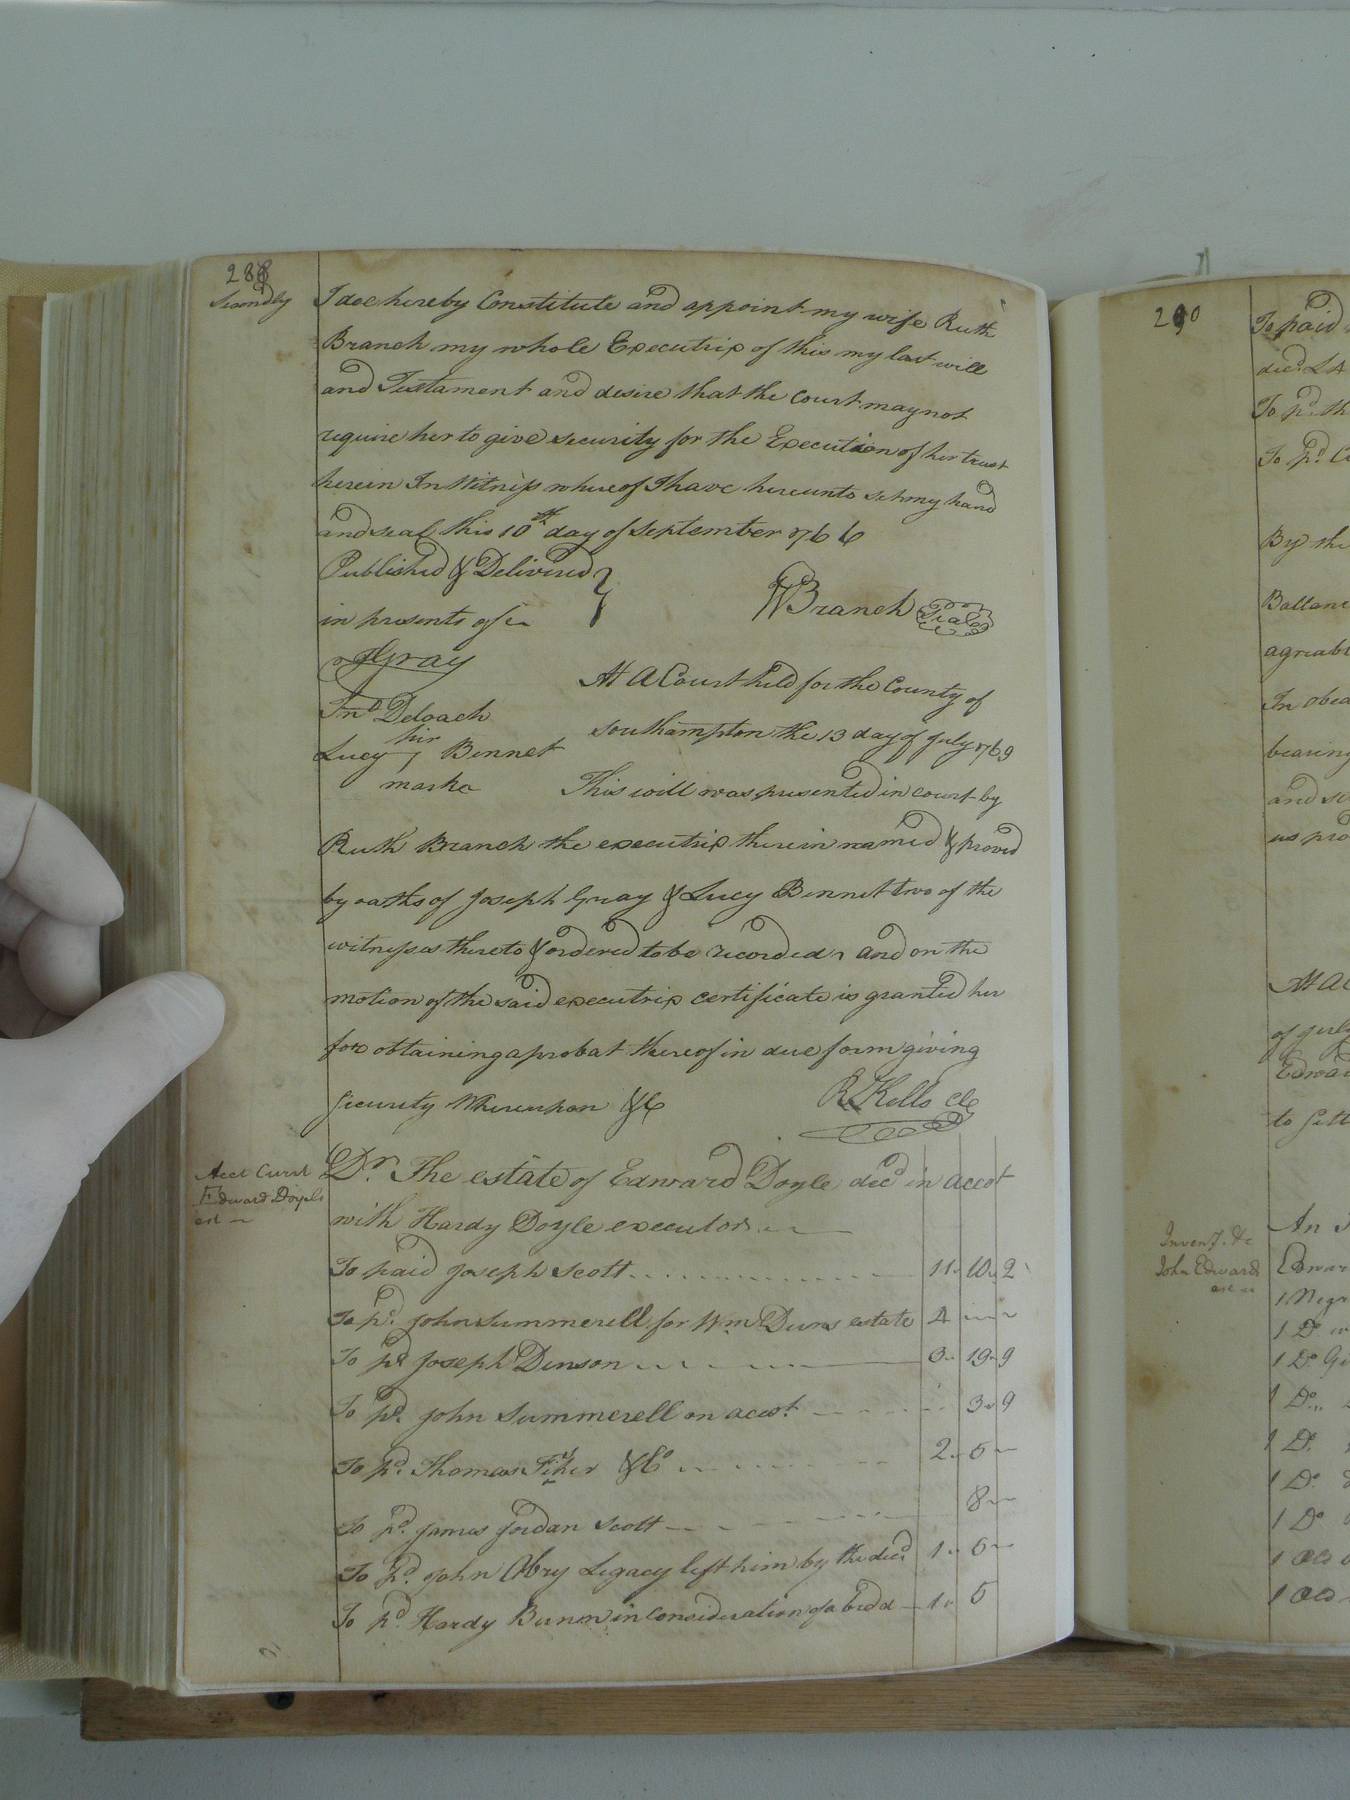 288
Secondly
I doe hereby Constitute and appoint my wife Ruth
Branch my whole Executrix of this my last will
and Testament and desire that the Court may not
require her to give security for the Execution of her trust
herein In Witness whereof I have hereunto set my hand
and seal this 10th day of September 1766
Published & Delivered
in presents of
WBranch Seal
JGray
Jno Deloach
her
Lucy 1 Bennet
marke
At A Court held for the County of
Southampton the 13 day of July 1769
This will was presented in court by
Ruth Branch the executrix therein named & proved
by oaths of Joseph Gray & Lucy Bennet two of the
witnesses thereto & ordered to be recorded and on the
motion of the said executrix certificate is granted her
for obtaining a probat thereof in due form giving
Security Whereupon &C
R Kello Cle
Acct Curst
Edward Doyels
est
Dr. The estate of Edward Doyle decd in accot
with Hardy Doyle executor
To paid Joseph Scott 11 10 2
To pd. John Summerell for Wm Duns estate 4
To pd Joseph Denson 3 19 9
To pd. John Summerell on accot 3 9
To pd. Thomas &Co 2 5
To pd. James Jordan Scott 8
To pd. John Abry Legacy left him by the decd 1 5
To pd. Hardy in Consideration of a bedd 1 5
290
To paid
decd.
To pd. th
To pd. C
By the
Ballanc
agreabl
In obea
bearing
and
us pro
At A C
of July
Edwar
to Sett
Invent. &c
John Edwards
est
An
Edwar
1 Negr
1 Do
1 Do Gi
1 Do
1 Do
1 Do
1 Do
1 Old
1 Old